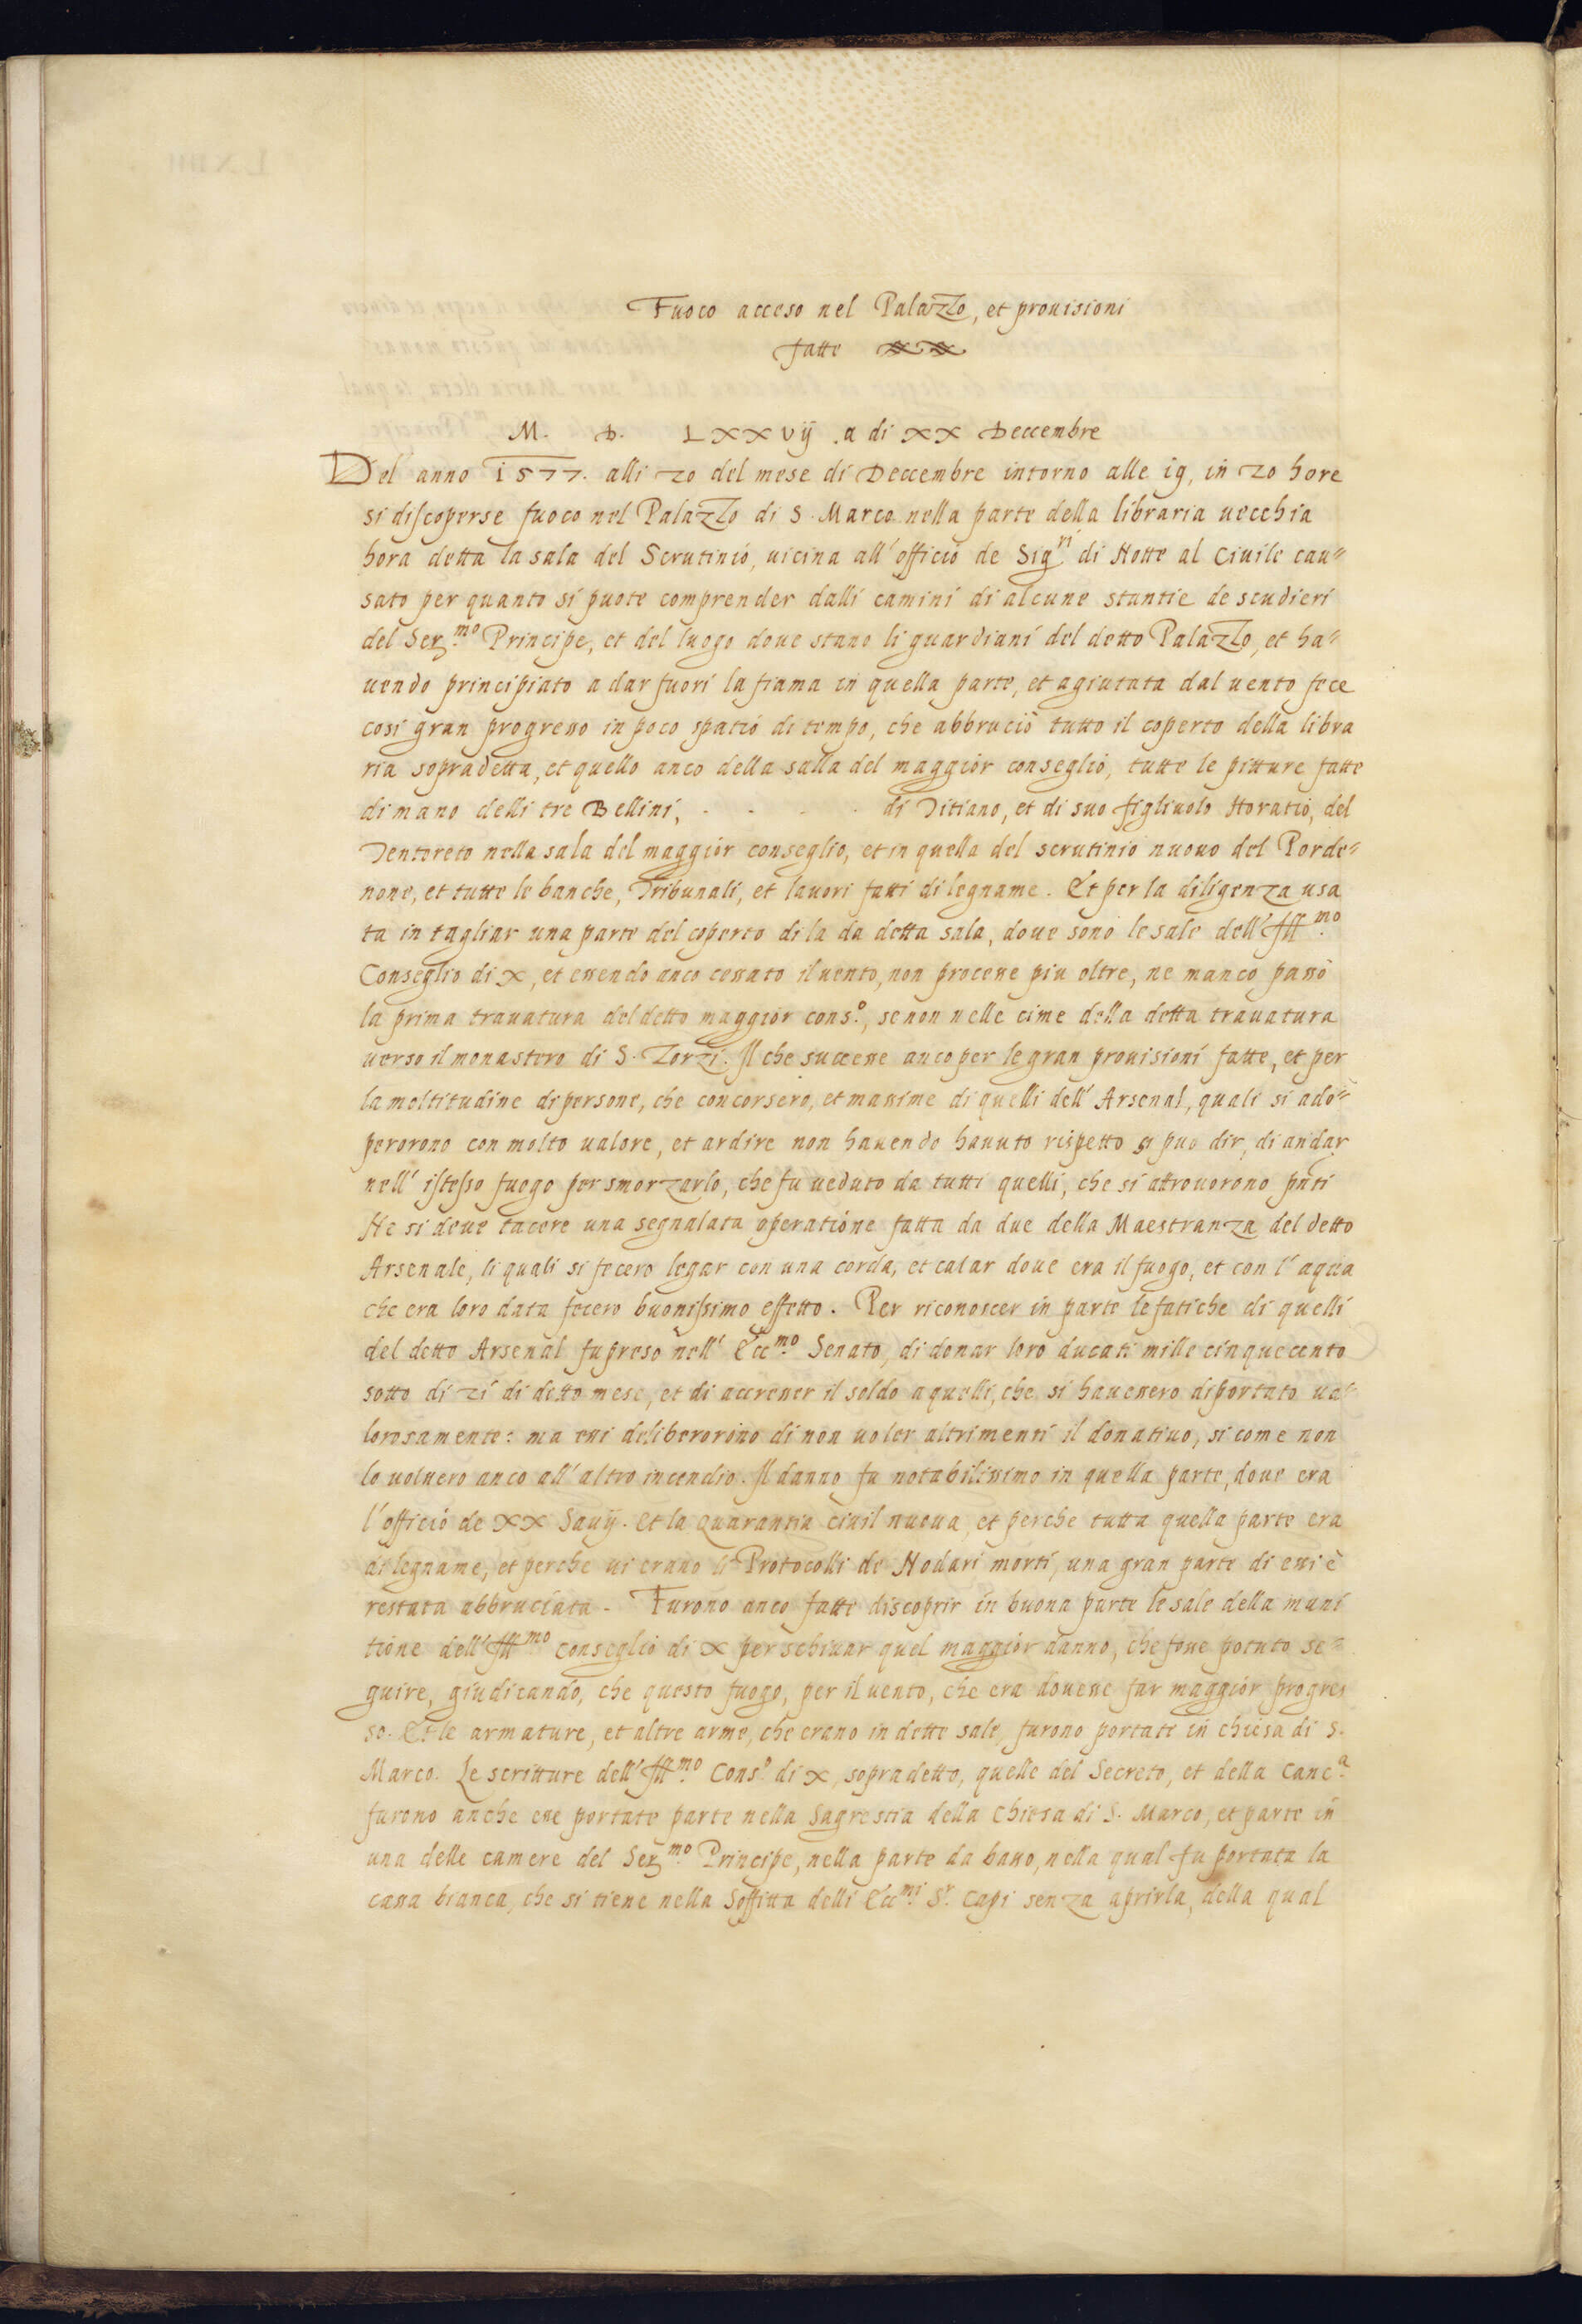 Fuoco acceso nel Palazzo, et prouisioni
fatte
M. D. LXXVij . a di XX Deccembre
Del anno 1577. alli 20 del mese di Deccembre intorno alle 19, in 20 hore
si discoperse fuoco nel Palazzo di S. Marco nella parte della libraria uecchia
hora detta la sala del Scrutinio, uicina all' officio de Sig.ri di Notte al Ciuile cau=
sato per quanto si puote comprender dalli camini di alcune stantie de scudieri
del Ser.mo Principe, et del luogo doue stano li guardiani del detto Palazzo, et ha=
uendo principiato a dar fuori la fiama in quella parte, et agiutata dal uento fece
cosi gran progresso in poco spatio di tempo, che abbruciò tutto il coperto della libra
ria sopradetta, et quello anco della salla del maggior conseglio, tutte le pitture fatte
di mano delli tre Bellini, . - - - . di Titiano, et di suo figliuolo Horatio, del
Tentoreto nella sala del maggior conseglio, et in quella del scrutinio nuouo del Porde=
none, et tutte le banche, Tribunali, et lauori fatti di legname. Et per la diligenza usa
ta in tagliar una parte del coperto di la da detta sala, doue sono le sale dell' Ill.mo
Conseglio di X, et essendo anco cessato il uento, non processe piu oltre, ne manco passò
la prima trauatura del detto maggior cons.o, se non nelle cime della detta trauatura
uerso il monastero di S. Zorzi. Il che successe anco per le gran prouisioni fatte, et per
la moltitudine di persone, che concorsero, et massime di quelli dell' Arsenal, quali si ado=
perorono con molto ualore, et ardire non hauendo hauuto rispetto si puo dir, di andar
nell' istesso fuogo per smorzarlo, che fu ueduto da tutti quelli, che si attrouorono pñti
Ne si deue tacere una segnalata operatione fatta da due della Maestranza del detto
Arsenale, li quali si fecero legar con una corda, et calar doue era il fuogo, et con l' aqua
che era loro data fecero buonissimo effetto. Per riconoscer in parte le fatiche di quelli
del detto Arsenal fu preso nell' Ecc.mo Senato, di donar loro ducati mille cinquecento
sotto di 21 di detto mese, et di accresser il soldo a quelli, che si hauessero diportato ua=
lorosamente: ma essi deliberorono di non uoler altrimenti il donatiuo, si come non
lo uolsero anco all' altro incendio. Il danno fu notabilissimo in quella parte, doue era
l' officio de XX Sauij. et la Quarantia ciuil nuoua, et perche tutta quella parte era
di legname, et perche ui erano li Protocolli de Nodari morti, una gran parte di essi è
restata abbruciata. Furono anco fatte discoprir in buona parte le sale della muni
tione dell' Ill.mo Conseglio di X per schiuar quel maggior danno, che fosse potuto se=
guire, giudicando, che questo fuogo, per il uento, che era douesse far maggior progres
so. Et le armature, et altre arme, che erano in dette sale, furono portate in chiesa di S.
Marco. Le scritture dell' Ill.mo Cons.o di X, sopradetto, quelle del Secreto, et della Canc.a
furono anche esse portate parte nella Sagrestia della Chiesa di S. Marco, et parte in
una delle camere del Ser.mo Principe, nella parte da basso, nella qual fu portata la
cassa bianca, che si tiene nella Soffitta delli Ecc.mi S.r Capi senza aprirla, della qual